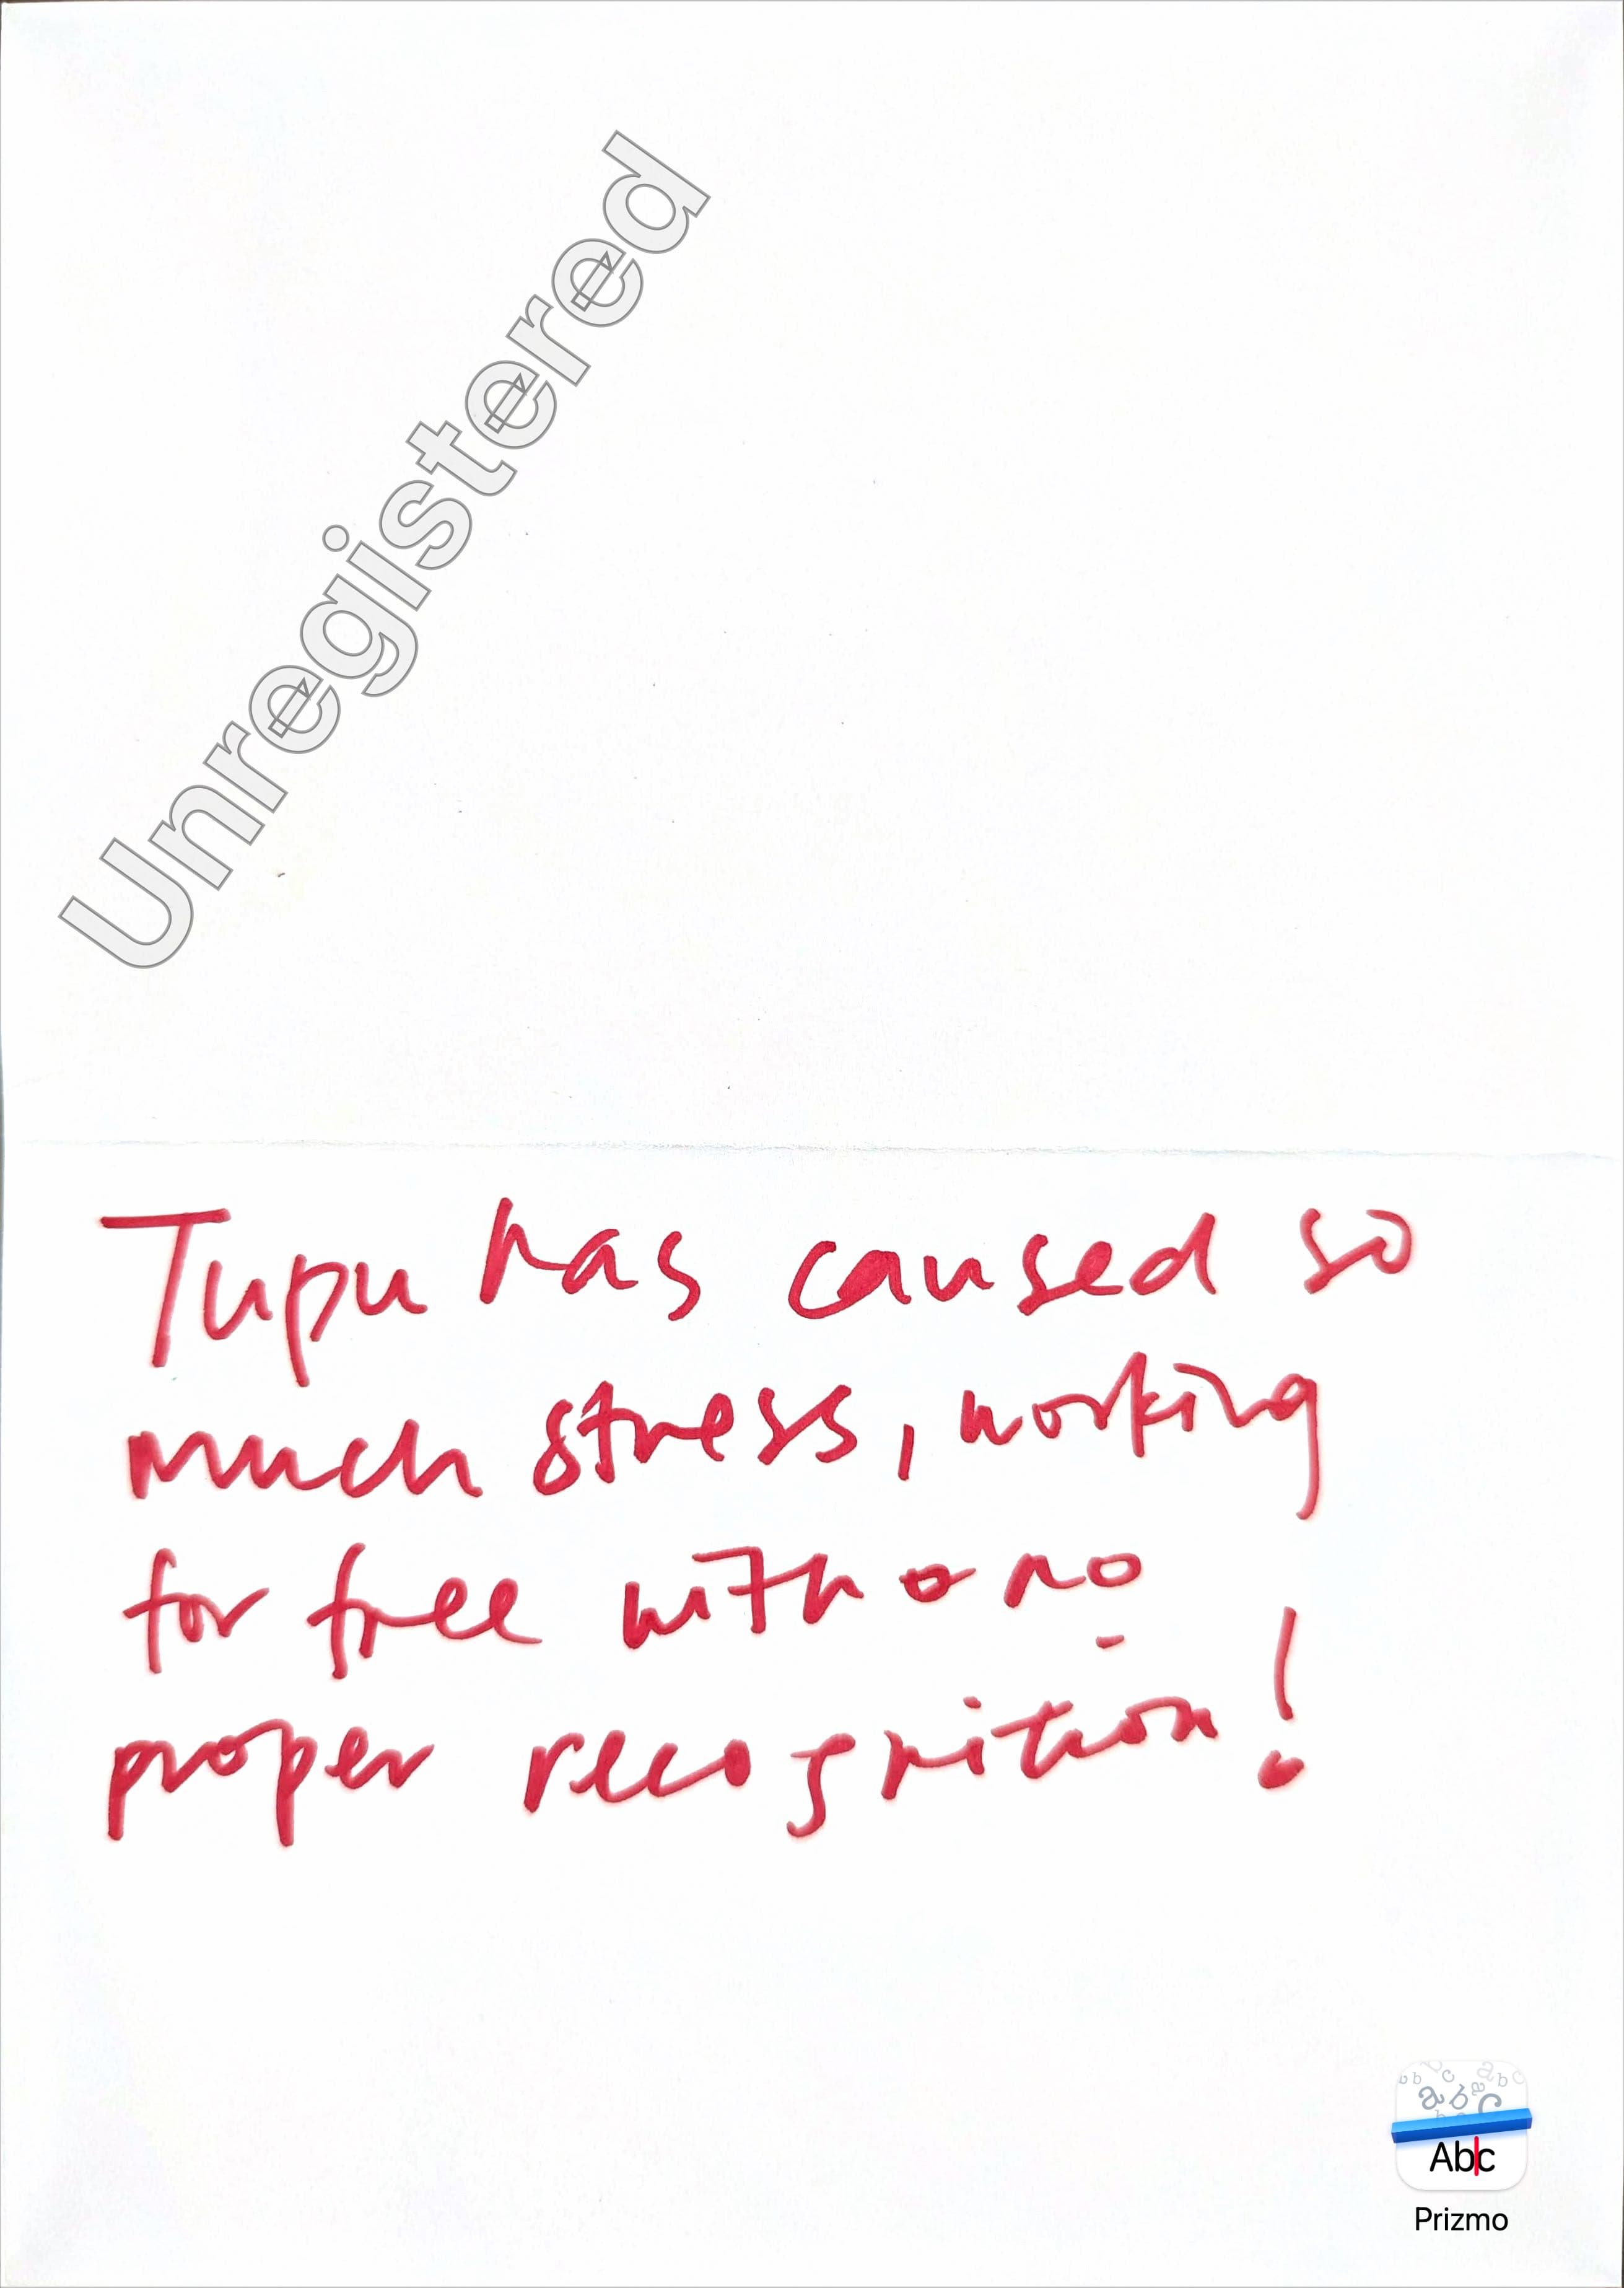 Unregistered
Tupu has caused so
much stress, working
for free with no
proper recognition!
Abc
Prizmo